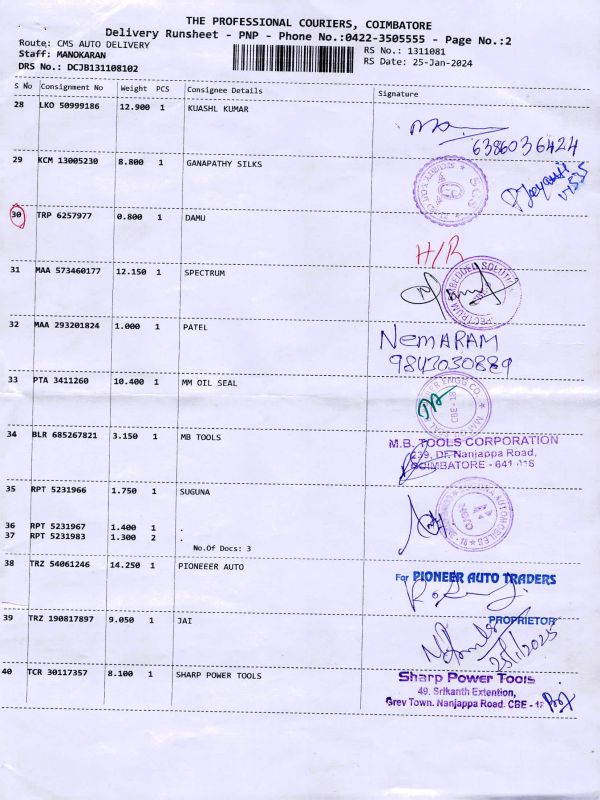 THE PROFESSIONAL COURIERS, COIMBATORE
Delivery Runsheet - PNP - Phone No.:0422-3505555 - Page No.:2
Route: CMS AUTO DELIVERY
RS No.: 1311081
Staff: MANOKARAN
RS Date: 25-Jan-2024
DRS No.: DCJB131108102
S No Consignment No Weight PCS Consignee Details Signature
28 LKO 50999186 12.900 1 KUASHL KUMAR
6386036424
29 KCM 13005230 8.800 1 GANAPATHY SILKS
30 TRP 6257977 0.800 1 DAMU
H/R
31 MAA 573460177 12.150 1 SPECTRUM
32 MAA 293201824 1.000 1 PATEL
NEMARAM
9843030889
33 PTA 3411260 10.400 1 MM OIL SEAL
34 BLR 685267821 3.150 1 MB TOOLS
M.B. TOOLS CORPORATION
239, Dr. Nanjappa Road,
COIMBATORE - 641 018
35 RPT 5231966 1.750 1 SUGUNA
36 RPT 5231967 1.400 1 .
37 RPT 5231983 1.300 2 .
No.Of Docs: 3
38 TRZ 54061246 14.250 1 PIONEEER AUTO
For PIONEER AUTO TRADERS
PROPRIETOR
39 TRZ 190817897 9.050 1 JAI
25/1/2025
40 TCR 30117357 8.100 1 SHARP POWER TOOLS
Sharp Power Tools
49, Srikanth Extention,
Grey Town, Nanjappa Road, CBE - 18